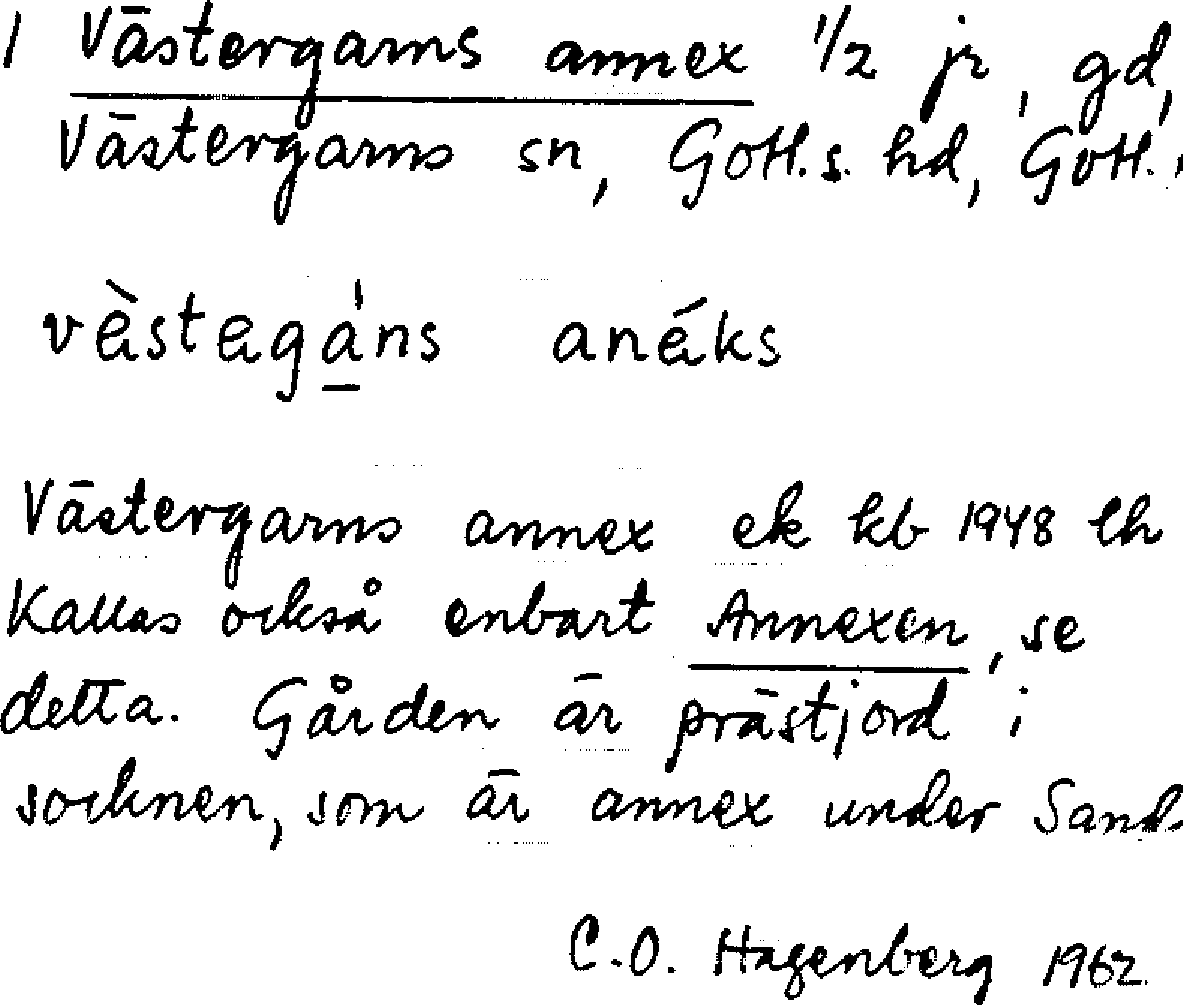 1 Västergarns annex 1/2 jr, gd,
Västergarns sn, Gotl. s. hd, Gotl.
vèstegáns anéks
Västergarns annex ek kb 1948 lh
Kallas också enbart Annexen, se
detta. Gården är prästjord i
socknen, som är annex under Sand.
C.O. Hagenberg 1962